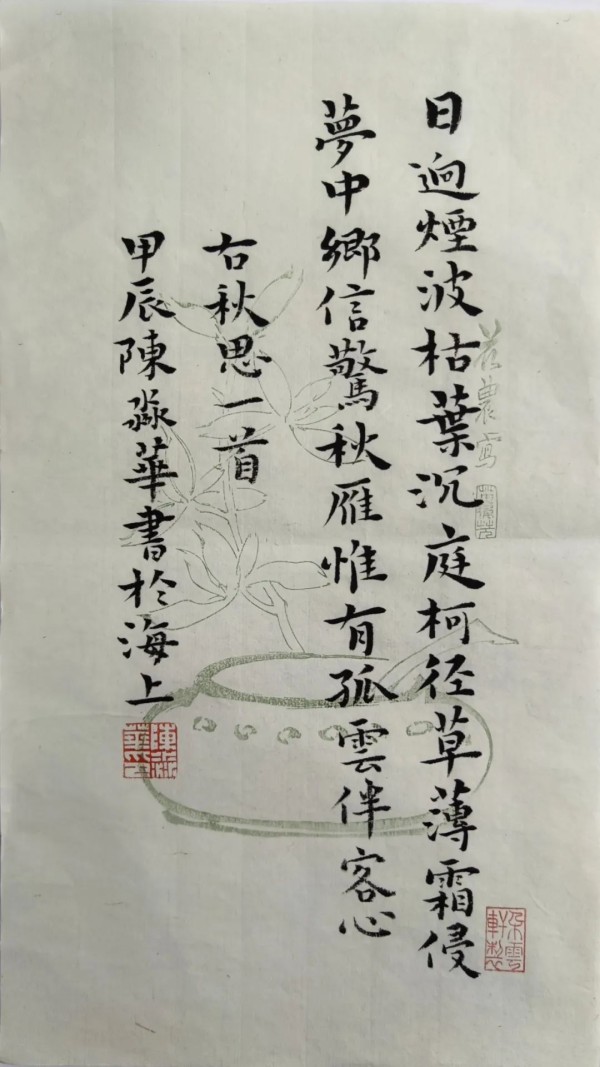 日迥煙波枯葉沉庭柯径草薄霜侵
夢中鄉信驚秋雁惟有孤雲伴客心
右秋思一首
甲辰陳淼華書於海上
朵雲軒製